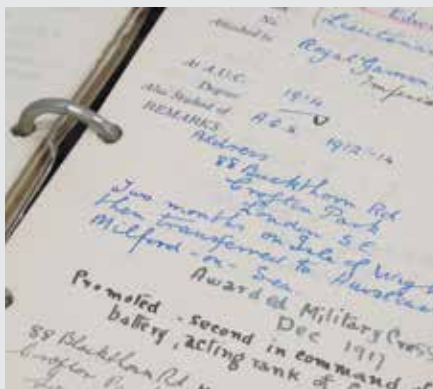 No.
Lieutenant
Attached to Royal Garrison
Imperial
M.A.U.C. 1914
Degree
Also Student of A.C.S. 1912-14
REMARKS
Address
88 Buckthorn Rd
Crofton Park
London S.E.
Two months on Isle of Wight
then transferred to
Milford-on-Sea
Awarded Military Cross
Dec 1917
Promoted - second in command of
battery, acting rank of
88 Blackthorn Rd
Crofton